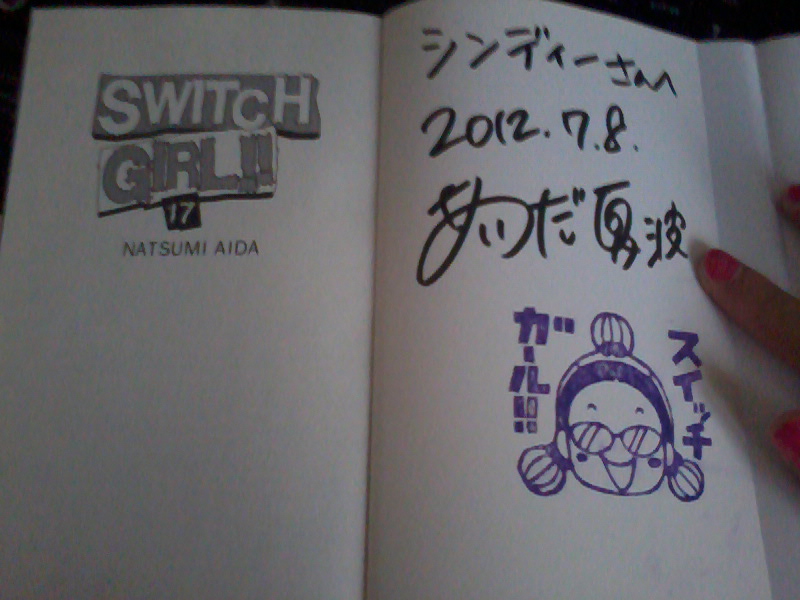 SWITCH
GIRL!!
17
NATSUMI AIDA
シンディーさん
2012.7.8.
あいだ夏波
スイッチ
ガール!!